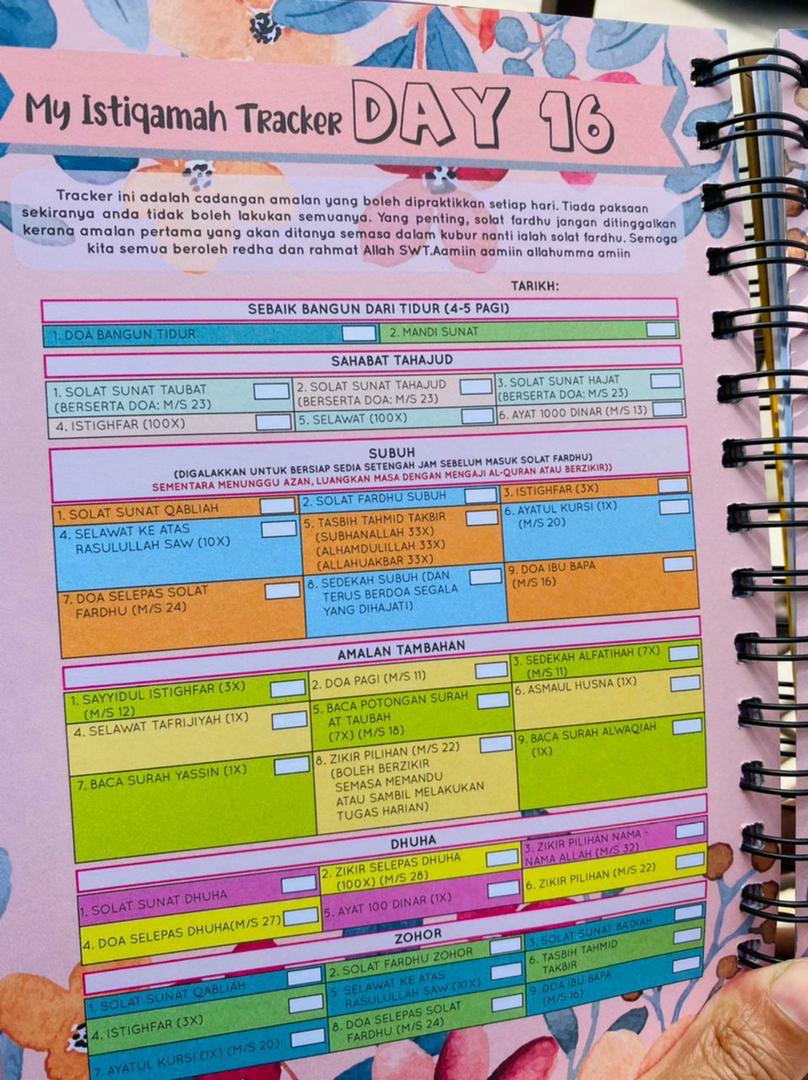 My Istiqamah Tracker DAY 16
Tracker ini adalah cadangan amalan yang boleh dipraktikkan setiap hari. Tiada paksaan
sekiranya anda tidak boleh lakukan semuanya. Yang penting, solat fardhu jangan ditinggalkan
kerana amalan pertama yang akan ditanya semasa dalam kubur nanti ialah solat fardhu. Semoga
kita semua beroleh redha dan rahmat Allah SWT.Aamiin aamiin allahumma amiin
TARIKH:
SEBAIK BANGUN DARI TIDUR (4-5 PAGI)
1. DOA BANGUN TIDUR
2. MANDI SUNAT
SAHABAT TAHAJUD
1. SOLAT SUNAT TAUBAT
(BERSERTA DOA: M/S 23)
2. SOLAT SUNAT TAHAJUD
(BERSERTA DOA: M/S 23)
3. SOLAT SUNAT HAJAT
(BERSERTA DOA: M/S 23)
4. ISTIGHFAR (100X)
5. SELAWAT (100X)
6. AYAT 1000 DINAR (M/S 13)
SUBUH
(DIGALAKKAN UNTUK BERSIAP SEDIA SETENGAH JAM SEBELUM MASUK SOLAT FARDHU)
SEMENTARA MENUNGGU AZAN, LUANGKAN MASA DENGAN MENGAJI AL-QURAN ATAU BERZIKIR))
1. SOLAT SUNAT QABLIAH
2. SOLAT FARDHU SUBUH
3. ISTIGHFAR (3X)
4. SELAWAT KE ATAS
RASULULLAH SAW (10X)
5. TASBIH TAHMID TAKBIR
(SUBHANALLAH 33X)
(ALHAMDULILLAH 33X)
(ALLAHUAKBAR 33X)
6. AYATUL KURSI (1X)
(M/S 20)
7. DOA SELEPAS SOLAT
FARDHU (M/S 24)
8. SEDEKAH SUBUH (DAN
TERUS BERDOA SEGALA
YANG DIHAJATI)
9. DOA IBU BAPA
(M/S 16)
AMALAN TAMBAHAN
1. SAYYIDUL ISTIGHFAR (3X)
(M/S 12)
2. DOA PAGI (M/S 11)
3. SEDEKAH ALFATIHAH (7X)
(M/S 11)
4. SELAWAT TAFRIJIYAH (1X)
5. BACA POTONGAN SURAH
AT TAUBAH
(7X) (M/S 18)
6. ASMAUL HUSNA (1X)
7. BACA SURAH YASSIN (1X)
8. ZIKIR PILIHAN (M/S 22)
(BOLEH BERZIKIR
SEMASA MEMANDU
ATAU SAMBIL MELAKUKAN
TUGAS HARIAN)
9. BACA SURAH ALWAQIAH
(1X)
DHUHA
1. SOLAT SUNAT DHUHA
2. ZIKIR SELEPAS DHUHA
(100X) (M/S 28)
3. ZIKIR PILIHAN NAMA -
NAMA ALLAH (M/S 32)
4. DOA SELEPAS DHUHA(M/S 27)
5. AYAT 100 DINAR (1X)
6. ZIKIR PILIHAN (M/S 22)
ZOHOR
1. SOLAT SUNAT QABLIAH
2. SOLAT FARDHU ZOHOR
3. SOLAT SUNAT BA'DIAH
4. ISTIGHFAR (3X)
5. SELAWAT KE ATAS
RASULULLAH SAW (10X)
6. TASBIH TAHMID
TAKBIR
7. AYATUL KURSI (1X) (M/S 20)
8. DOA SELEPAS SOLAT
FARDHU (M/S 24)
9. DOA IBU BAPA
(M/S 16)